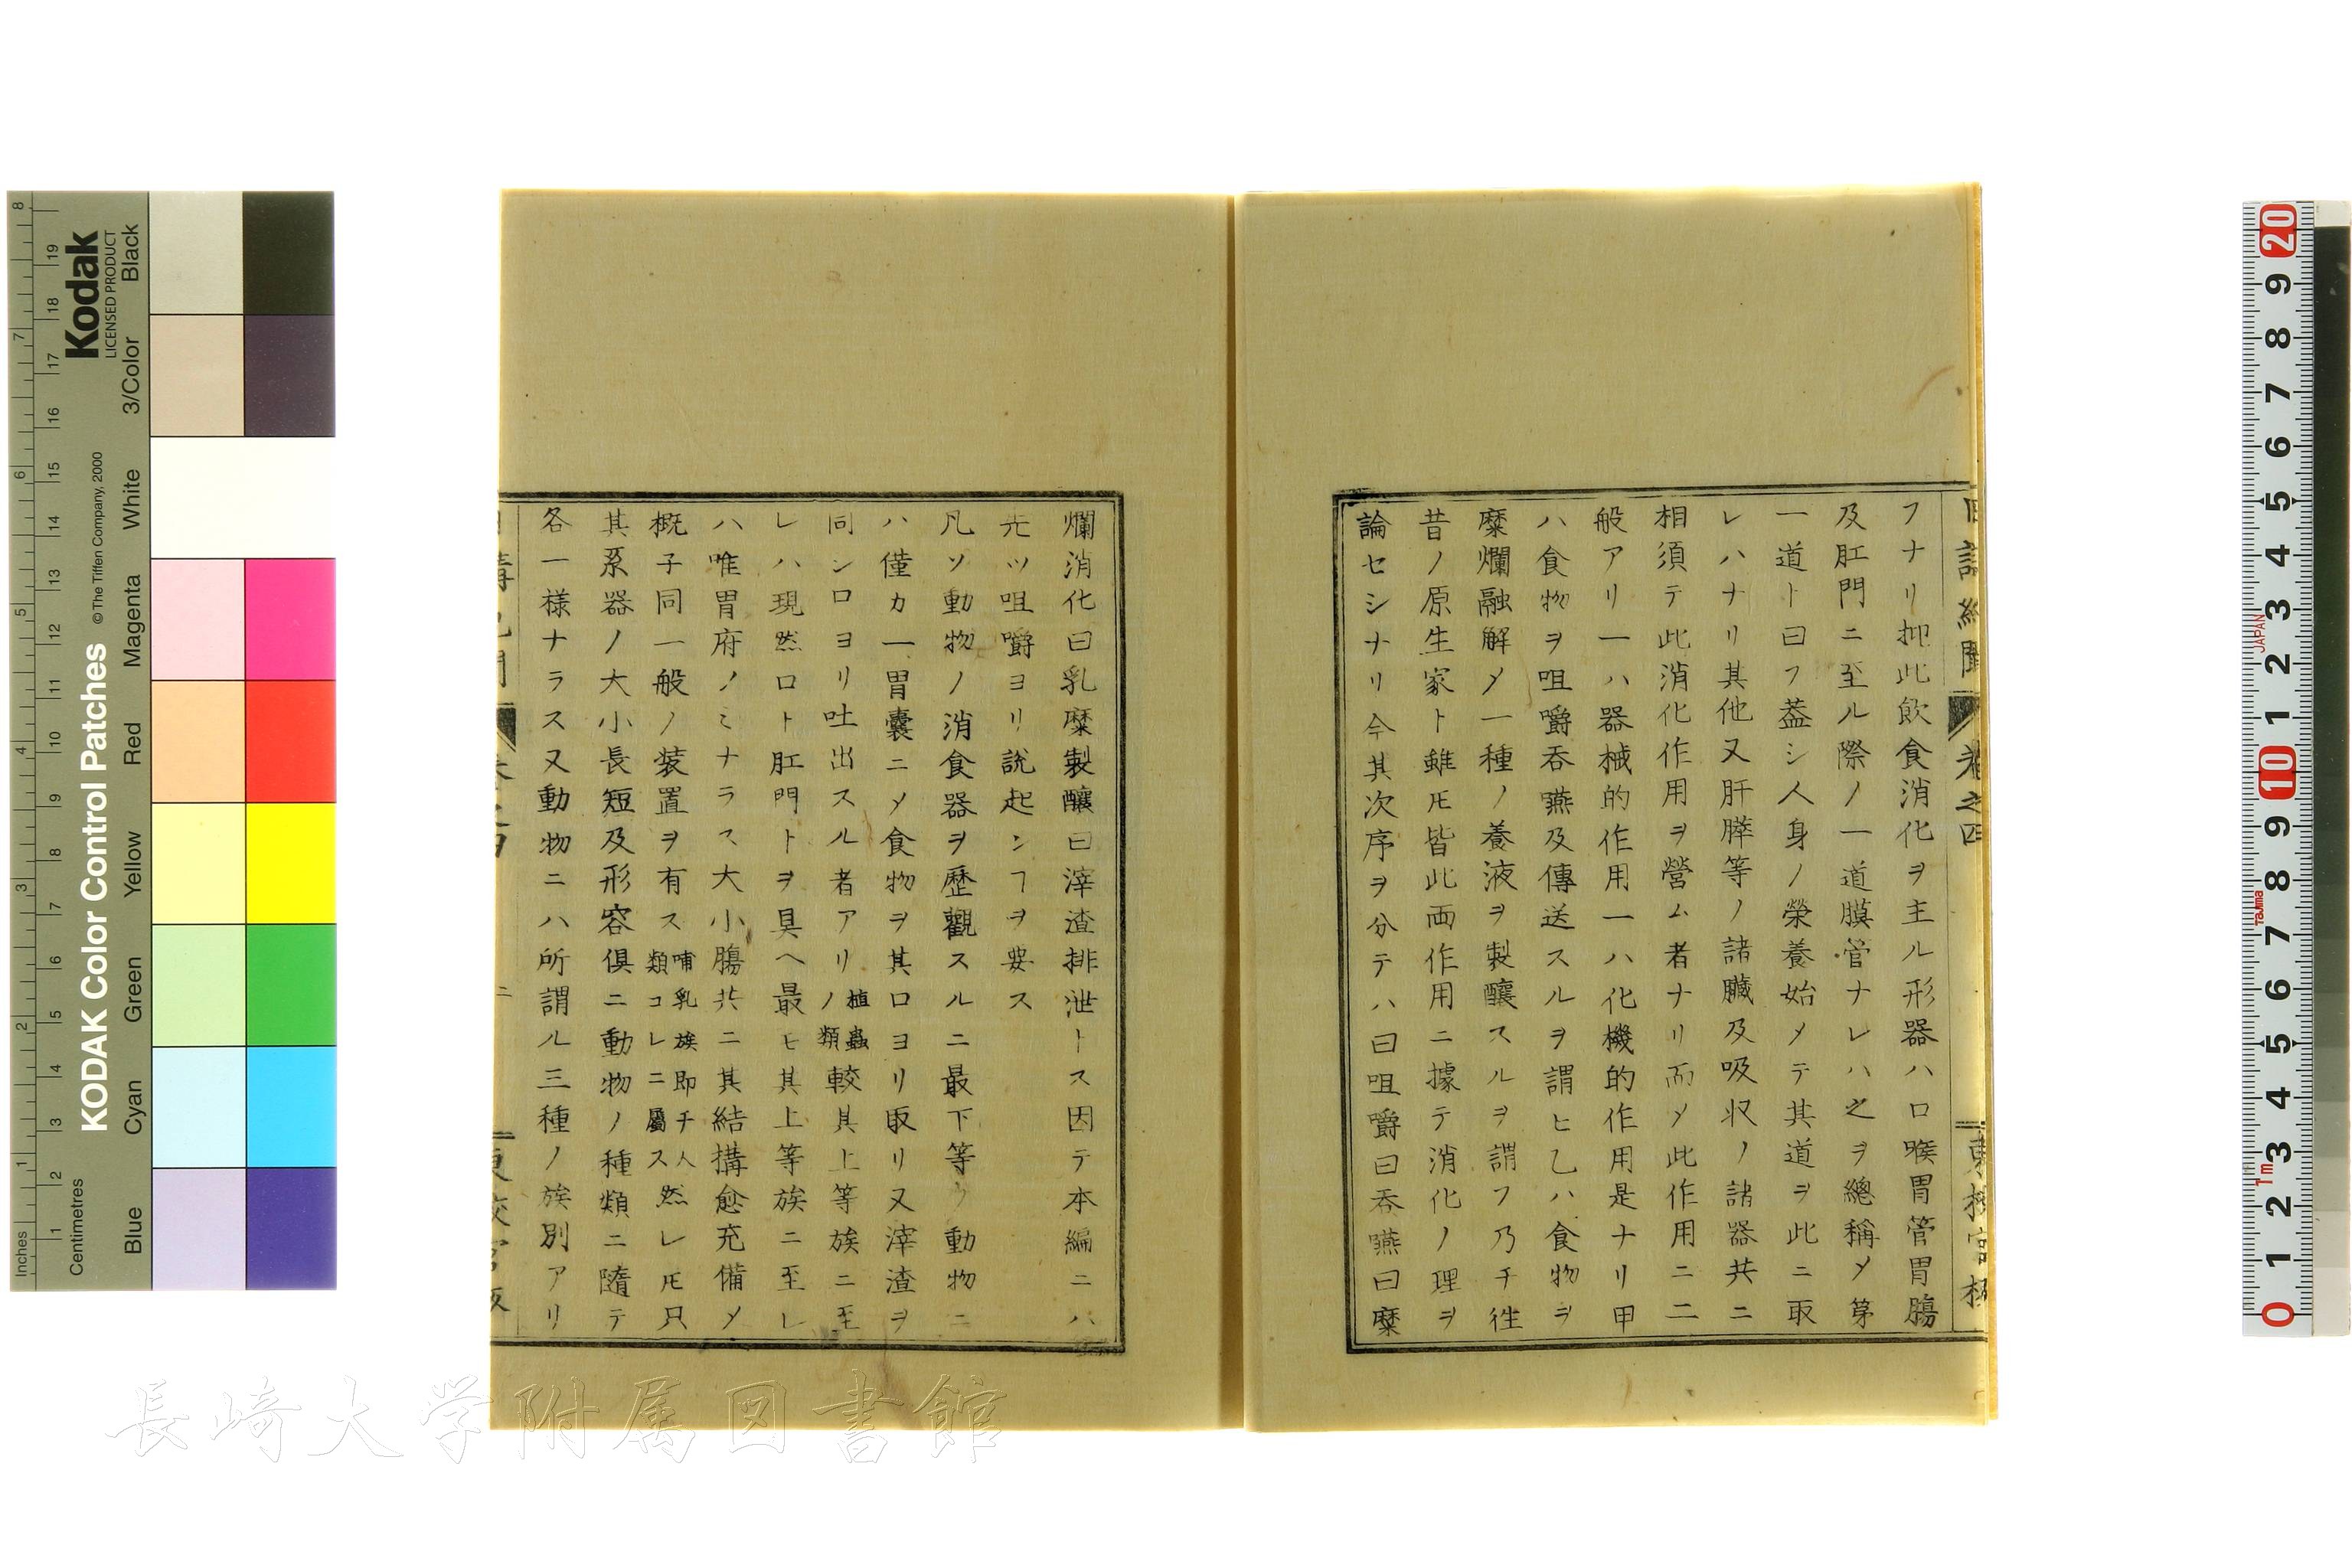 日講紀聞 卷之四 東校官板
フナリ抑此飲食消化ヲ主ル形器ハ口喉胃管胃膓
及肛門ニ至ル際ノ一道膜管ナレハ之ヲ總稱〆第
一道ト曰フ蓋シ人身ノ榮養始メテ其道ヲ此ニ取
レハナリ其他又肝膵等ノ諸臟及吸収ノ諸器共ニ
相須テ此消化作用ヲ營ム者ナリ而〆此作用ニ二
般アリ一ハ器械的作用一ハ化機的作用是ナリ甲
ハ食物ヲ咀嚼吞嚥及傳送スルヲ謂ヒ乙ハ食物ヲ
糜爛融解〆一種ノ養液ヲ製釀スルヲ謂フ乃チ徃
昔ノ原生家ト雖𪜈皆此両作用ニ據テ消化ノ理ヲ
論セシナリ今其次序ヲ分テハ曰咀嚼曰吞嚥曰糜
爛消化曰乳糜製釀曰滓渣排泄トス因テ本編ニハ
先ツ咀嚼ヨリ説起ンヿヲ要ス
凡ソ動物ノ消食器ヲ歴觀スルニ最下等ノ動物ニ
ハ僅カ一胃囊ニ〆食物ヲ其口ヨリ取リ又滓渣ヲ
同シ口ヨリ吐出スル者アリ植蟲ノ類較其上等族ニ至
レハ現然口ト肛門トヲ具ヘ最モ其上等族ニ至レ
ハ唯胃府ノミナラス大小膓共ニ其結搆愈充備〆
概子同一般ノ装置ヲ有ス哺乳族即チ人類コレニ屬ス然レ𪜈只
其系器ノ大小長短及形容倶ニ動物ノ種類ニ隨テ
各一様ナラス又動物ニハ所謂ル三種ノ族別アリ
二
Kodak
LICENSED PRODUCT
KODAK Color Control Patches
© The Tiffen Company, 2000
Blue Cyan Green Yellow Red Magenta White 3/Color Black
Inches 1 2 3 4 5 6 7 8
Centimetres 1 2 3 4 5 6 7 8 9 10 11 12 13 14 15 16 17 18 19
0 1 2 3 4 5 6 7 8 9 10 1 2 3 4 5 6 7 8 9 20
1m Tajima JAPAN
長崎大学附属図書館